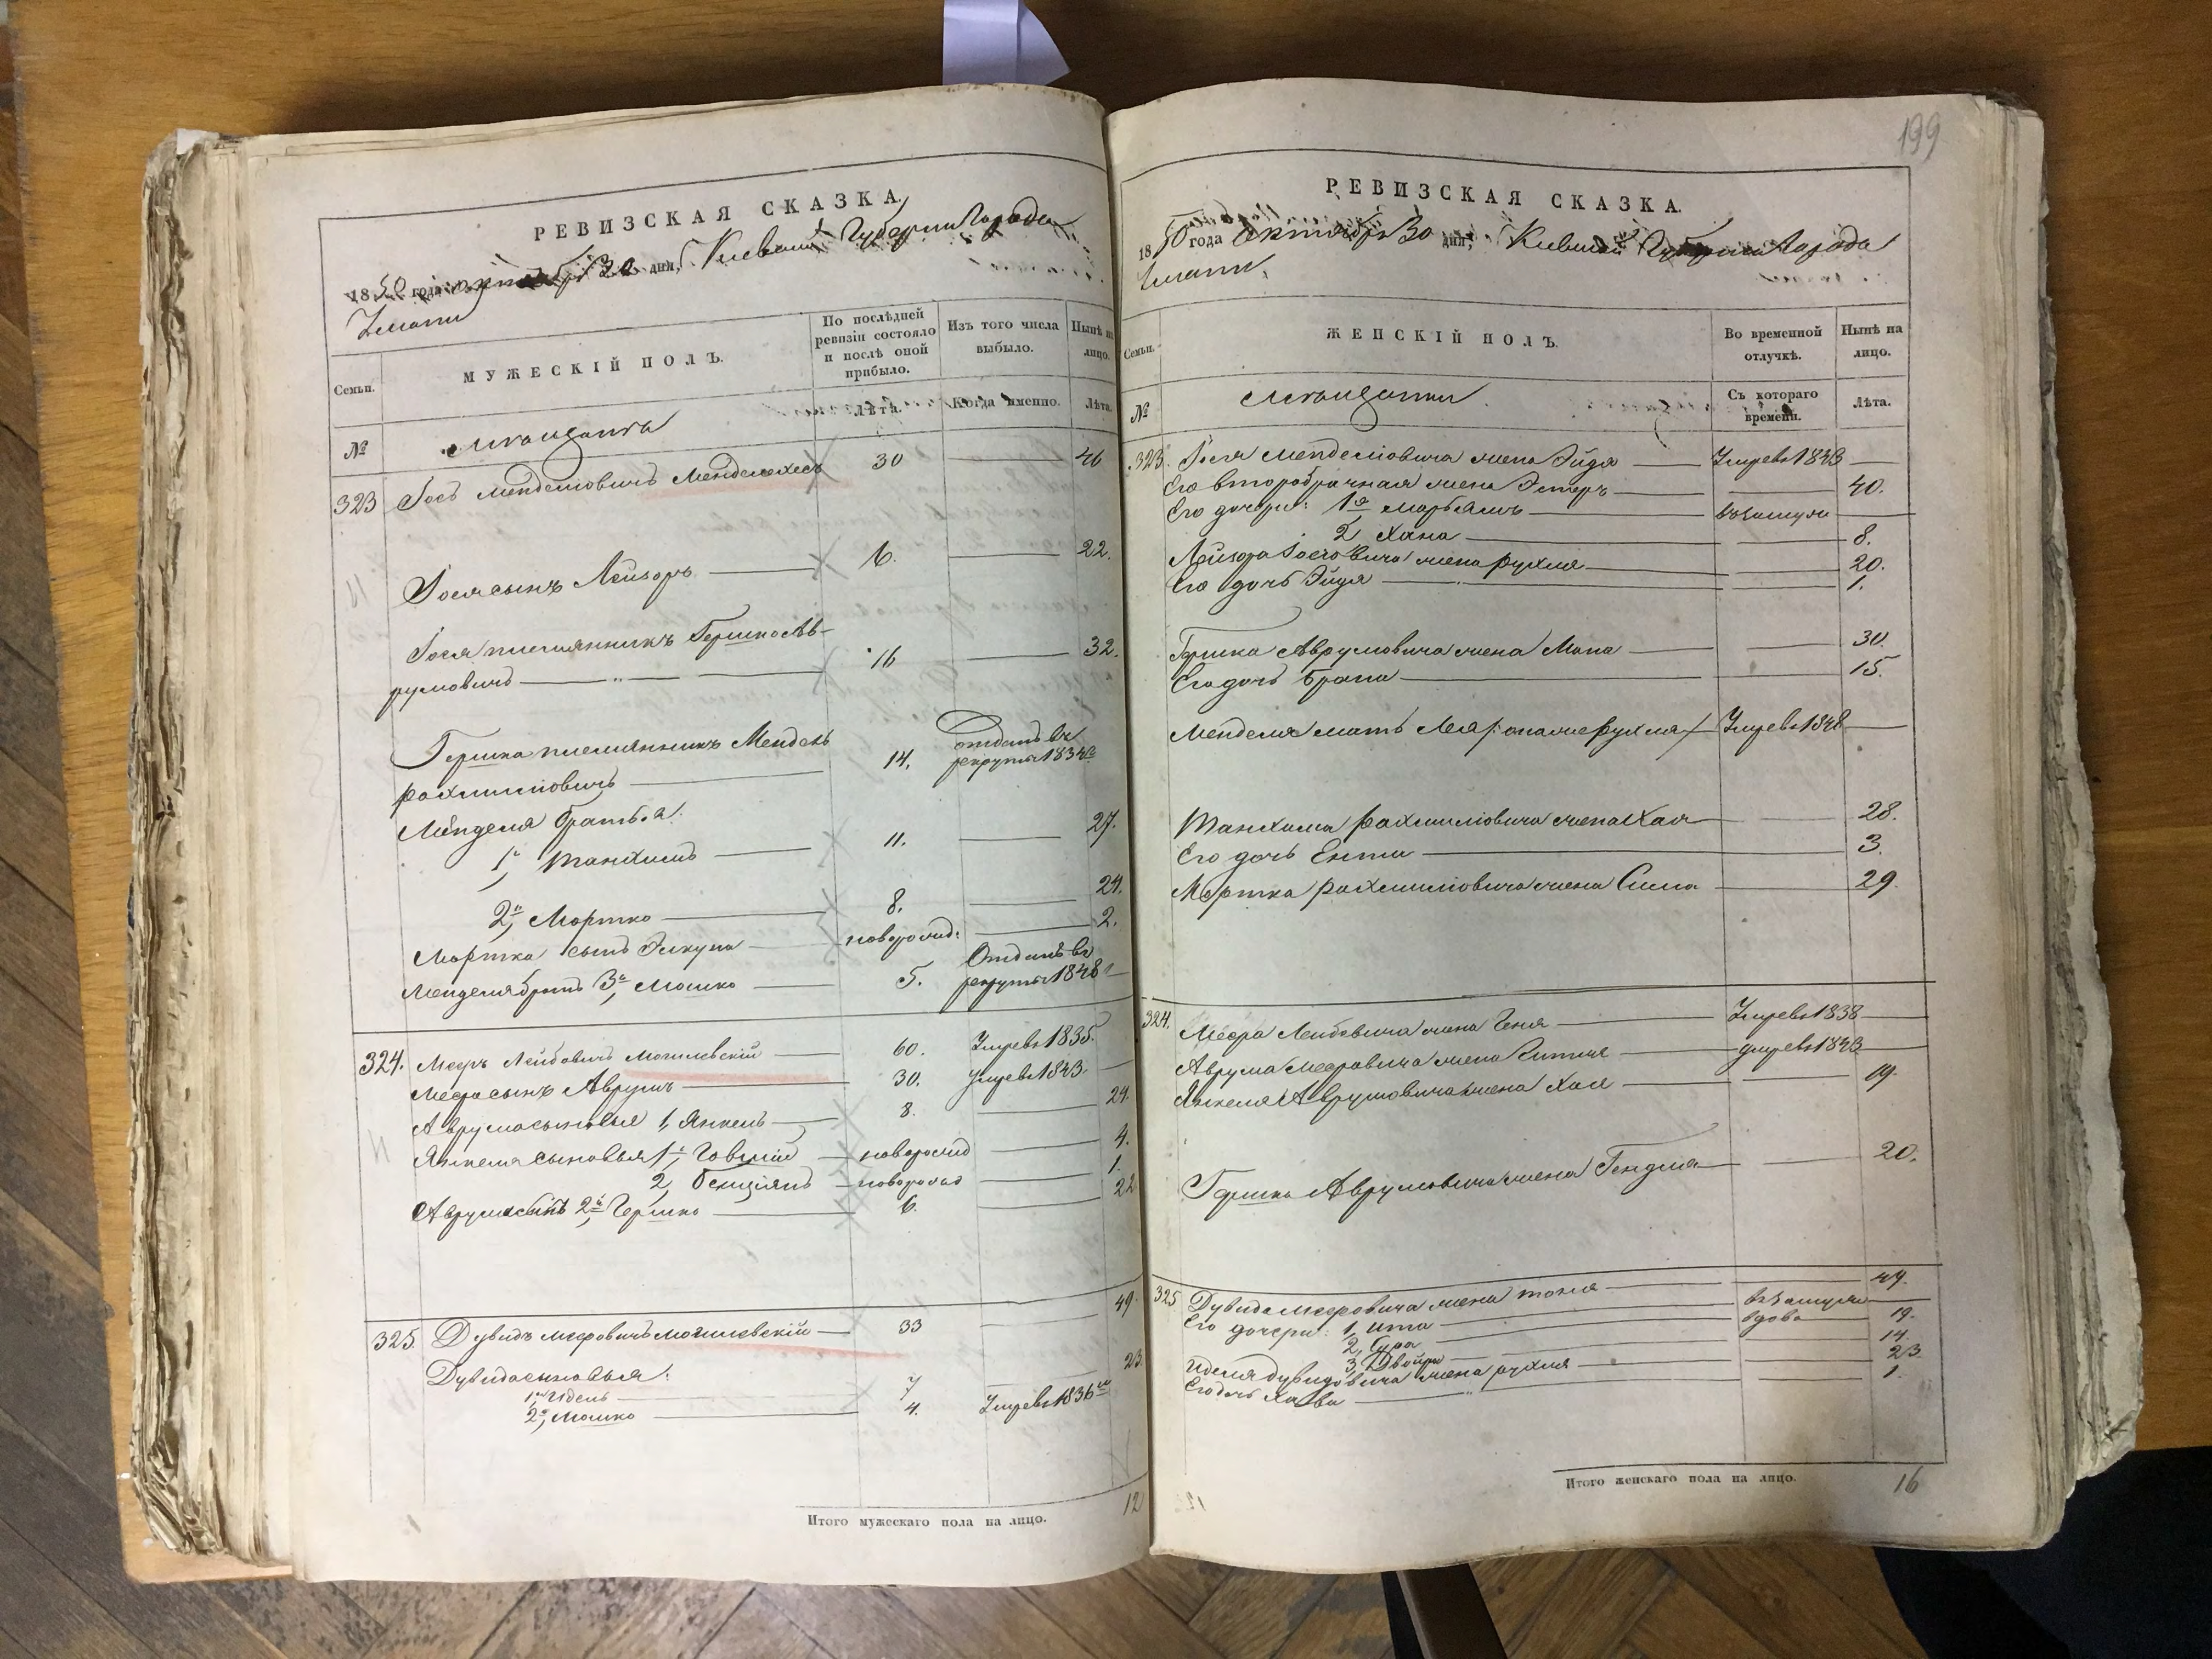 РЕВИЗСКАЯ СКАЗКА.
1850 года октября 30 дня, Киевской Губернии Города
Умани
Семьи.
МУЖЕСКІЙ ПОЛЪ.
По послѣдней ревизіи состояло и послѣ оной прибыло.
Изъ того числа выбыло.
Нынѣ на лицо.
№
Лѣта.
Когда именно.
Лѣта.
323 Іось Менделіовичъ Менделехесъ 30 46
Іося сынъ Лейзоръ 6. 22.
Іося племянникъ Гершко Ав-
румовичъ 16 32.
Гершка племянникъ Мендель
Рахмиліовичъ 14. отданъ въ рекруты 1834
Менделя братья:
1, Танхимъ 11. 27.
2й, Мортко 8. 24.
Мортка сынъ Элкуна новорожд: 2.
Менделя братъ 3й, Мошко 5. Отданъ въ рекруты 1848
324. Мееръ Лейбовичъ Могилевскій 60. Умре въ 1835.
Меера сынъ Аврумъ 30. Умре въ 1843.
Аврума сыновья 1, Янкель 8. 24
Янкеля сыновья 1й, Говшій новорожд 4.
2, Бенціянъ новорожд 1.
Аврума сынъ 2й, Гершко 6. 22
325. Дувидъ Мееровичъ Могилевскій 33 49.
Дувида сыновья:
1й, Идель 7 23
2й, Мошко 4. Умре въ 1836
Итого мужескаго пола на лицо. 12
199
РЕВИЗСКАЯ СКАЗКА.
1850 года Октября 30 дня, Киевской Губернии Города
Умани,
Семьи.
ЖЕНСКІЙ ПОЛЪ.
Во временной отлучкѣ.
Нынѣ на лицо.
№
Съ котораго времени.
Лѣта.
323. Іося Менделіовича жена Эйдя Умре въ 1843
Его второбрачная жена Эстеръ 40.
Его дочери: 1я Марьямъ въ замуж
2, Хана 8.
Лейзора Іосіовича жена Рухля 20.
Его дочь Эйдя 1.
Гершка Аврумовича жена Мапа 30.
Его дочь Брана 15.
Менделя мать Лея /: она же Рухля / Умре въ 1848
Танхима Рахмиліовича жена Хая 28.
Его дочь Ента 3.
Мортка Рахмиліовича жена Сима 29.
324. Меера Лейбовича жена Геня Умре въ 1838
Аврума Мееровича жена Гитля умре въ 1843
Янкеля Аврумовича жена Хая 19.
Гершка Аврумовича жена Гендля 20.
325 Дувида Мееровича жена Тоня 49.
Его дочери: 1, Ита въ замуж
2, Сура вдова 19.
3, Двойра 14.
Иделя Дувидовича жена Рухля 23
Его дочь Хава 1.
Итого женскаго пола на лицо. 16